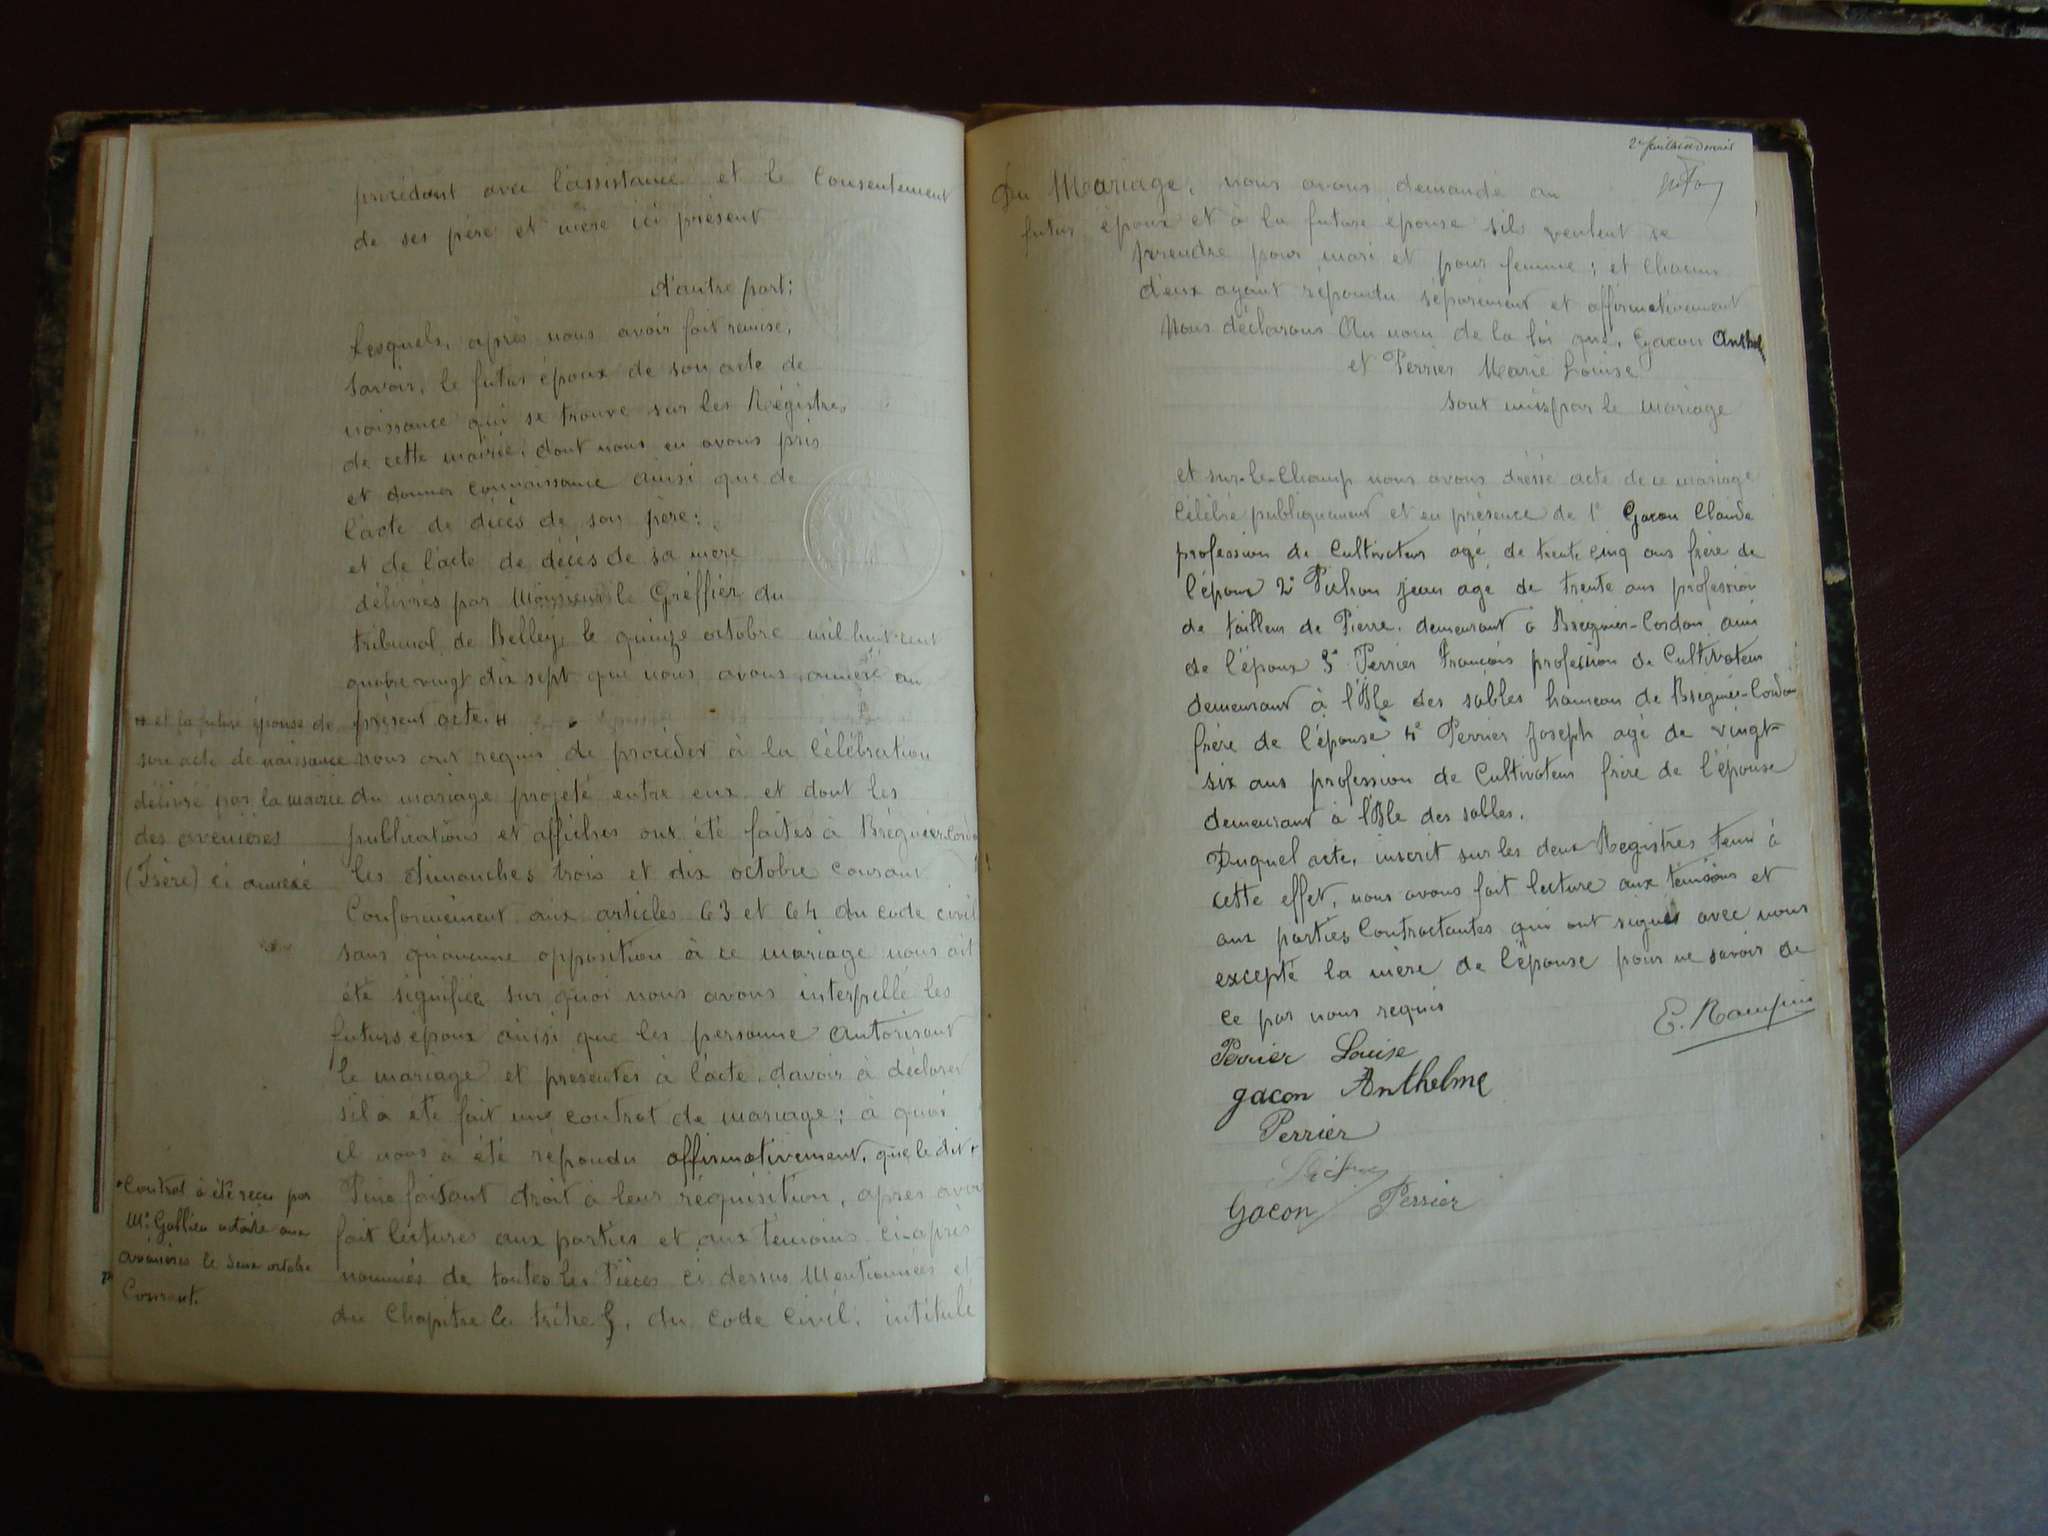 procédant avec l'assistance et le Consentement
de ses père et mère ici présent
d'autre part:
Lesquels, après nous avoir fait remise,
Savoir, le futur époux de son acte de
naissance qui se trouve sur les Régistres
de cette mairie, dont nous en avons pris
et donner connaissance ainsi que de
l'acte de décès de son père:
et de l'acte de décès de sa mère
délivrés par Monsieur le Gréffier du
tribunal de Belley, le quinze octobre mil huit cent
quatre vingt dix sept que nous avons annéxé au
présent acte. #
nous ont requis de procéder à la Célébration
du mariage projeté entre eux et dont les
publications et affiches ont été faites à Brégnier-Cordon
les dimanches trois et dix octobre courant
Conformément aux articles 63 et 64 du code civil
sans qu'aucune opposition à ce mariage nous ait
été signifiée sur quoi nous avons interpellé les
futurs époux ainsi que les personne autorisant
le mariage et présentes à l'acte d'avoir à déclarer
s'il a été fait une contrat de mariage; à quoi
il nous a été répondu affirmativement, que le dit +
faisant droit à leur réquisition, après avoir
fait lecture aux parties et aux témoins ci-après
nommés de toutes les Pièces ci dessus Mentionnées et
du Chapitre du Code Civil, intitulé
# et la future épouse de
son acte de naissance
délivré par la mairie
des avenières
(Isère) ci annéxé
+ Contrat à été recu par
Me Gallieu notaire aux
avenières le deux octobre
Courant.
Du Mariage, nous avons demandé au
futur époux et à la future épouse s'ils veulent se
prendre pour mari et pour femme; et Chacun
d'eux ayant répondu séparément et affirmativement
Nous déclarons Au nom de la loi que, Gacon Anthel
et Perrier Marie Louise
sont unis par le mariage
et sur-le-Champ nous avons dréssé acte de ce mariage
Célébré publiquement et en présence de 1° Gacon Claude
profession de Cultivateur agé de trente cinq ans frère de
l'époux 2° Pichon Jean agé de trente ans profession
de tailleur de Pierre, demeurant à Brégnier-Cordon ami
de l'époux 3° Perrier François profession de Cultivateur
demeurant à l'Isle des sables hameau de Brégnier-Cordon
frère de l'épouse 4° Perrier Joseph agé de vingt-
six ans profession de Cultivateur frère de l'épouse
demeurant à l'Isle des sables.
Duquel acte, inscrit sur les deux Registres tenu à
cette effet, nous avons fait lecture aux témoins et
aux parties Contractantes qui ont signés avec nous
excepté la mère de l'épouse pour ne savoir de
ce par nous requis
Perrier Louise
gacon Anthelme
Perrier
Gacon Perrier